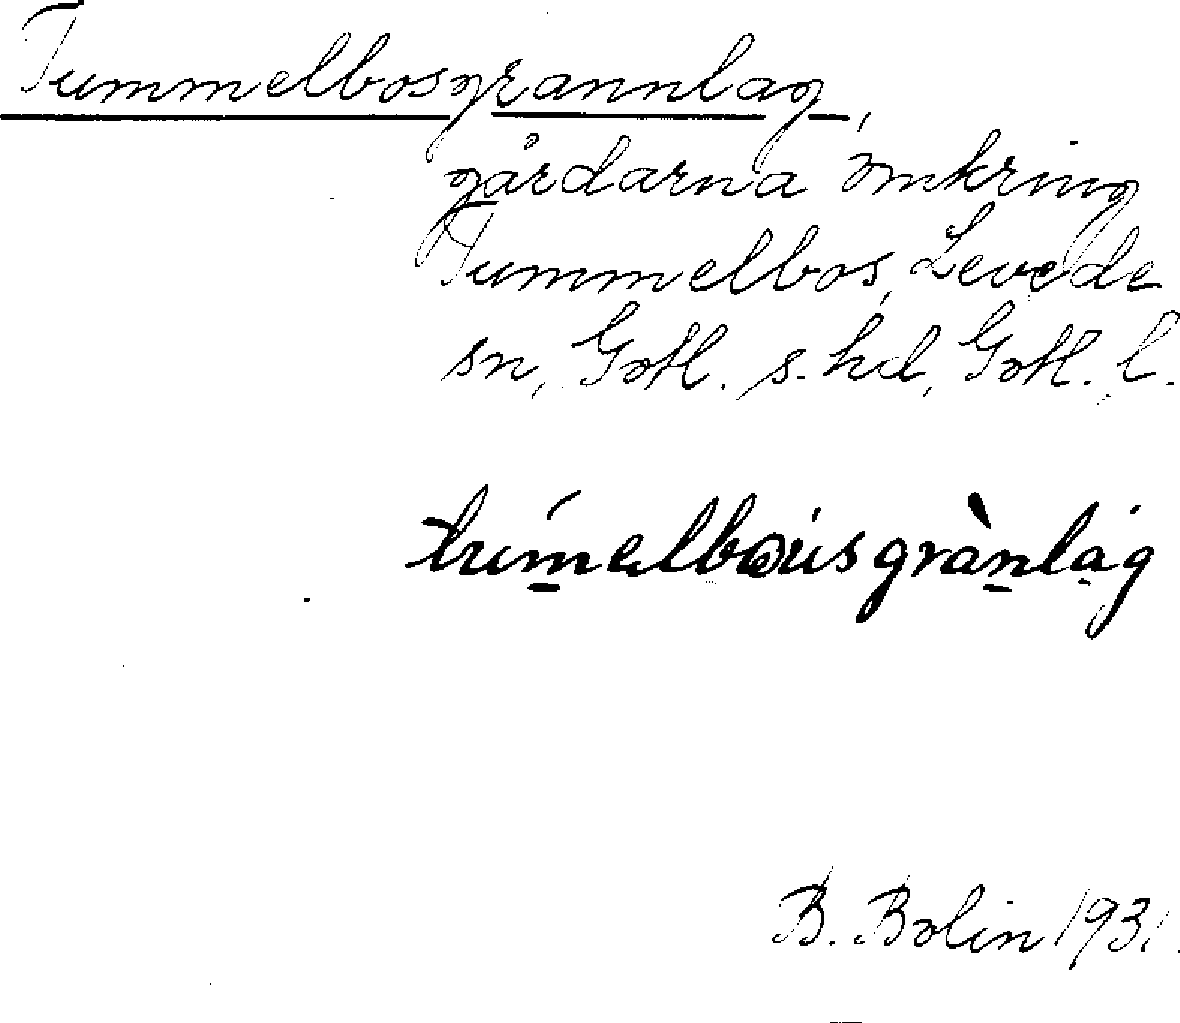 Tummelbosgrannlag,
gårdarna omkring
Tummelbos, Levede
sn, Gotl. s. hd, Gotl. l.
B. Bolin 1931.